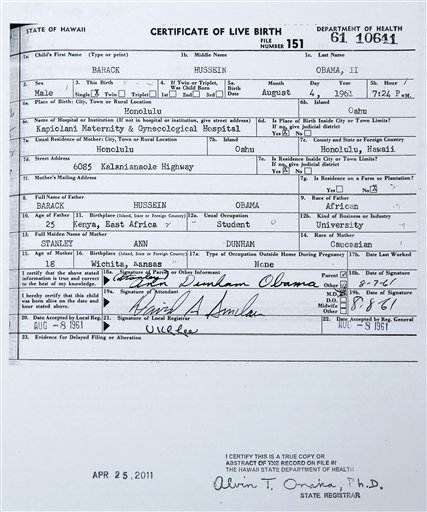 STATE OF HAWAII CERTIFICATE OF LIVE BIRTH DEPARTMENT OF HEALTH
FILE NUMBER 151 61 10641
1a. Child's First Name (Type or print) 1b. Middle Name 1c. Last Name
BARACK HUSSEIN OBAMA, II
2. Sex 3. This Birth 4. If Twin or Triplet, Was Child Born 5a. Birth Date Month Day Year 5b. Hour
Male Single X Twin Triplet 1st 2nd 3rd August 4, 1961 7:24 P.M.
6a. Place of Birth: City, Town or Rural Location 6b. Island
Honolulu Oahu
6c. Name of Hospital or Institution (If not in hospital or institution, give street address) 6d. Is Place of Birth Inside City or Town Limits? If no, give judicial district
Kapiolani Maternity & Gynecological Hospital Yes X No
7a. Usual Residence of Mother: City, Town or Rural Location 7b. Island 7c. County and State or Foreign Country
Honolulu Oahu Honolulu, Hawaii
7d. Street Address 7e. Is Residence Inside City or Town Limits? If no, give judicial district
6085 Kalanianaole Highway Yes X No
7f. Mother's Mailing Address 7g. Is Residence on a Farm or Plantation?
Yes No X
8. Full Name of Father 9. Race of Father
BARACK HUSSEIN OBAMA African
10. Age of Father 11. Birthplace (Island, State or Foreign Country) 12a. Usual Occupation 12b. Kind of Business or Industry
25 Kenya, East Africa Student University
13. Full Maiden Name of Mother 14. Race of Mother
STANLEY ANN DUNHAM Caucasian
15. Age of Mother 16. Birthplace (Island, State or Foreign Country) 17a. Type of Occupation Outside Home During Pregnancy 17b. Date Last Worked
18 Wichita, Kansas None
I certify that the above stated information is true and correct to the best of my knowledge. 18a. Signature of Parent or Other Informant Parent Other 18b. Date of Signature
(Stanley) Ann Dunham Obama 8-7-61
I hereby certify that this child was born alive on the date and hour stated above. 19a. Signature of Attendant M.D. D.O. Midwife Other 19b. Date of Signature
David A Sinclair 8-8-61
20. Date Accepted by Local Reg. 21. Signature of Local Registrar 22. Date Accepted by Reg. General
AUG -8 1961 U K L Lee AUG -8 1961
23. Evidence for Delayed Filing or Alteration
APR 25, 2011
I CERTIFY THIS IS A TRUE COPY OR
ABSTRACT OF THE RECORD ON FILE IN
THE HAWAII STATE DEPARTMENT OF HEALTH
Alvin T. Onaka, Ph.D.
STATE REGISTRAR